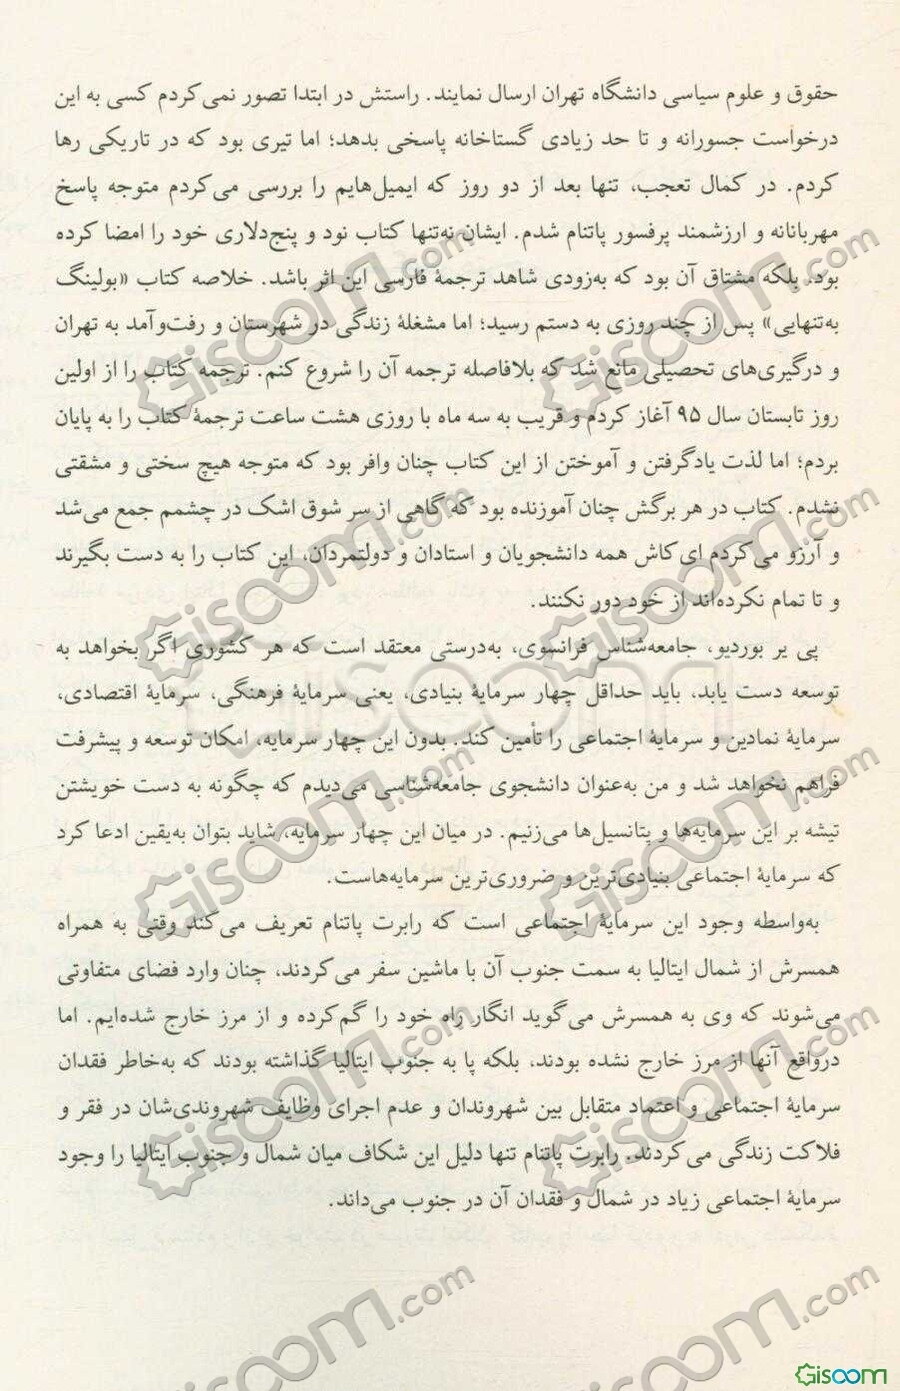 حقوق و علوم سیاسی دانشگاه تهران ارسال نمایند. راستش در ابتدا تصور نمی‌کردم کسی به این
درخواست جسورانه و تا حد زیادی گستاخانه پاسخی بدهد؛ اما تیری بود که در تاریکی رها
کردم. در کمال تعجب، تنها بعد از دو روز که ایمیل‌هایم را بررسی می‌کردم متوجه پاسخ
مهربانانه و ارزشمند پرفسور پاتنام شدم. ایشان نه‌تنها کتاب نود و پنج‌دلاری خود را امضا کرده
بود، بلکه مشتاق آن بود که به‌زودی شاهد ترجمهٔ فارسی این اثر باشد. خلاصه کتاب «بولینگ
به‌تنهایی» پس از چند روزی به دستم رسید؛ اما مشغلهٔ زندگی در شهرستان و رفت‌وآمد به تهران
و درگیری‌های تحصیلی مانع شد که بلافاصله ترجمه آن را شروع کنم. ترجمه کتاب را از اولین
روز تابستان سال ۹۵ آغاز کردم و قریب به سه ماه با روزی هشت ساعت ترجمهٔ کتاب را به پایان
بردم؛ اما لذت یادگرفتن و آموختن از این کتاب چنان وافر بود که متوجه هیچ سختی و مشقتی
نشدم. کتاب در هر برگش چنان آموزنده بود که گاهی از سر شوق اشک در چشمم جمع می‌شد
و آرزو می‌کردم ای‌کاش همه دانشجویان و استادان و دولتمردان، این کتاب را به دست بگیرند
و تا تمام نکرده‌اند از خود دور نکنند.
پی یر بوردیو، جامعه‌شناس فرانسوی، به‌درستی معتقد است که هر کشوری اگر بخواهد به
توسعه دست یابد، باید حداقل چهار سرمایهٔ بنیادی، یعنی سرمایهٔ فرهنگی، سرمایهٔ اقتصادی،
سرمایهٔ نمادین و سرمایهٔ اجتماعی را تأمین کند. بدون این چهار سرمایه، امکان توسعه و پیشرفت
فراهم نخواهد شد و من به‌عنوان دانشجوی جامعه‌شناسی می‌دیدم که چگونه به دست خویشتن
تیشه بر این سرمایه‌ها و پتانسیل‌ها می‌زنیم. در میان این چهار سرمایه، شاید بتوان به‌یقین ادعا کرد
که سرمایهٔ اجتماعی بنیادی‌ترین و ضروری‌ترین سرمایه‌هاست.
به‌واسطه وجود این سرمایهٔ اجتماعی است که رابرت پاتنام تعریف می‌کند وقتی به همراه
همسرش از شمال ایتالیا به سمت جنوب آن با ماشین سفر می‌کردند، چنان وارد فضای متفاوتی
می‌شوند که وی به همسرش می‌گوید انگار راه خود را گم‌کرده و از مرز خارج شده‌ایم. اما
درواقع آنها از مرز خارج نشده بودند، بلکه پا به جنوب ایتالیا گذاشته بودند که به‌خاطر فقدان
سرمایهٔ اجتماعی و اعتماد متقابل بین شهروندان و عدم اجرای وظایف شهروندی‌شان در فقر و
فلاکت زندگی می‌کردند. رابرت پاتنام تنها دلیل این شکاف میان شمال و جنوب ایتالیا را وجود
سرمایهٔ اجتماعی زیاد در شمال و فقدان آن در جنوب می‌داند.
Giscom